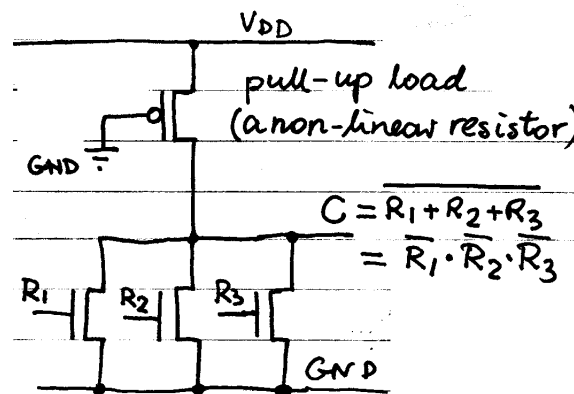 VDD
pull-up load
(a non-linear resistor)
GND
C = \overline{R₁+R₂+R₃}
= \overline{R₁}·\overline{R₂}·\overline{R₃}
R₁
R₂
R₃
GND